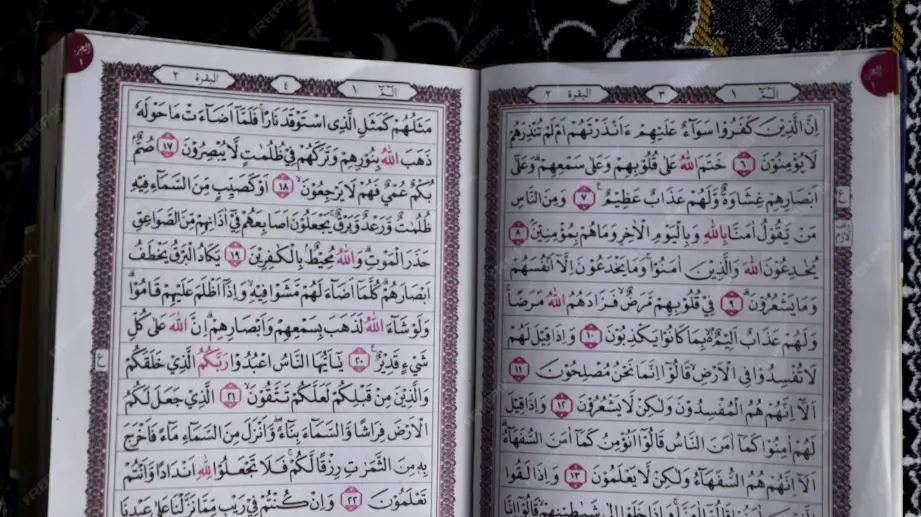 الٓمّٓ ١
٣
البقرة ٢
اِنَّ الَّذ۪ينَ كَفَرُوا سَوَٓاءٌ عَلَيْهِمْ ءَاَنْذَرْتَهُمْ اَمْ لَمْ تُنْذِرْهُمْ
لَا يُؤْمِنُونَ ٦ خَتَمَ اللّٰهُ عَلٰى قُلُوبِهِمْ وَعَلٰى سَمْعِهِمْ وَعَلٰٓى
اَبْصَارِهِمْ غِشَاوَةٌ وَلَهُمْ عَذَابٌ عَظ۪يمٌ ٧ وَمِنَ النَّاسِ
مَنْ يَقُولُ اٰمَنَّا بِاللّٰهِ وَبِالْيَوْمِ الْاٰخِرِ وَمَا هُمْ بِمُؤْمِن۪ينَ ٨
يُخَادِعُونَ اللّٰهَ وَالَّذ۪ينَ اٰمَنُوا وَمَا يَخْدَعُونَ اِلَّٓا اَنْفُسَهُمْ
وَمَا يَشْعُرُونَ ٩ ف۪ي قُلُوبِهِمْ مَرَضٌ فَزَادَهُمُ اللّٰهُ مَرَضًا
وَلَهُمْ عَذَابٌ اَل۪يمٌ بِمَا كَانُوا يَكْذِبُونَ ١٠ وَاِذَا ق۪يلَ لَهُمْ
لَا تُفْسِدُوا فِي الْاَرْضِ قَالُٓوا اِنَّمَا نَحْنُ مُصْلِحُونَ ١١
اَلَٓا اِنَّهُمْ هُمُ الْمُفْسِدُونَ وَلٰكِنْ لَا يَشْعُرُونَ ١٢ وَاِذَا ق۪يلَ
لَهُمْ اٰمِنُوا كَمَٓا اٰمَنَ النَّاسُ قَالُٓوا اَنُؤْمِنُ كَمَٓا اٰمَنَ السُّفَهَٓاءُ
اَلَٓا اِنَّهُمْ هُمُ السُّفَهَٓاءُ وَلٰكِنْ لَا يَعْلَمُونَ ١٣ وَاِذَا لَقُوا
الَّذ۪ينَ اٰمَنُوا قَالُٓوا اٰمَنَّا وَاِذَا خَلَوْا اِلٰى شَيَاط۪ينِهِمْ قَالُٓوا اِنَّا
الٓمّٓ ١
٤
البقرة ٢
مَثَلُهُمْ كَمَثَلِ الَّذِي اسْتَوْقَدَ نَارًا فَلَمَّٓا اَضَٓاءَتْ مَا حَوْلَهُ
ذَهَبَ اللّٰهُ بِنُورِهِمْ وَتَرَكَهُمْ ف۪ي ظُلُمَاتٍ لَا يُبْصِرُونَ ١٧ صُمٌّ
بُكْمٌ عُمْيٌ فَهُمْ لَا يَرْجِعُونَ ١٨ اَوْ كَصَيِّبٍ مِنَ السَّمَٓاءِ ف۪يهِ
ظُلُمَاتٌ وَرَعْدٌ وَبَرْقٌ يَجْعَلُونَ اَصَابِعَهُمْ ف۪ٓي اٰذَانِهِمْ مِنَ الصَّوَاعِقِ
حَذَرَ الْمَوْتِ وَاللّٰهُ مُح۪يطٌ بِالْكَافِر۪ينَ ١٩ يَكَادُ الْبَرْقُ يَخْطَفُ
اَبْصَارَهُمْ كُلَّمَٓا اَضَٓاءَ لَهُمْ مَشَوْا ف۪يهِ وَاِذَٓا اَظْلَمَ عَلَيْهِمْ قَامُوا
وَلَوْ شَٓاءَ اللّٰهُ لَذَهَبَ بِسَمْعِهِمْ وَاَبْصَارِهِمْ اِنَّ اللّٰهَ عَلٰى كُلِّ
شَيْءٍ قَد۪يرٌ ٢٠ يَٓا اَيُّهَا النَّاسُ اعْبُدُوا رَبَّكُمُ الَّذ۪ي خَلَقَكُمْ
وَالَّذ۪ينَ مِنْ قَبْلِكُمْ لَعَلَّكُمْ تَتَّقُونَ ٢١ اَلَّذ۪ي جَعَلَ لَكُمُ
الْاَرْضَ فِرَاشًا وَالسَّمَٓاءَ بِنَٓاءً وَاَنْزَلَ مِنَ السَّمَٓاءِ مَٓاءً فَاَخْرَجَ
بِه۪ مِنَ الثَّمَرَاتِ رِزْقًا لَكُمْ فَلَا تَجْعَلُوا لِلّٰهِ اَنْدَادًا وَاَنْتُمْ
تَعْلَمُونَ ٢٢ وَاِنْ كُنْتُمْ ف۪ي رَيْبٍ مِمَّا نَزَّلْنَا عَلٰى عَبْدِنَا
FREEPIK